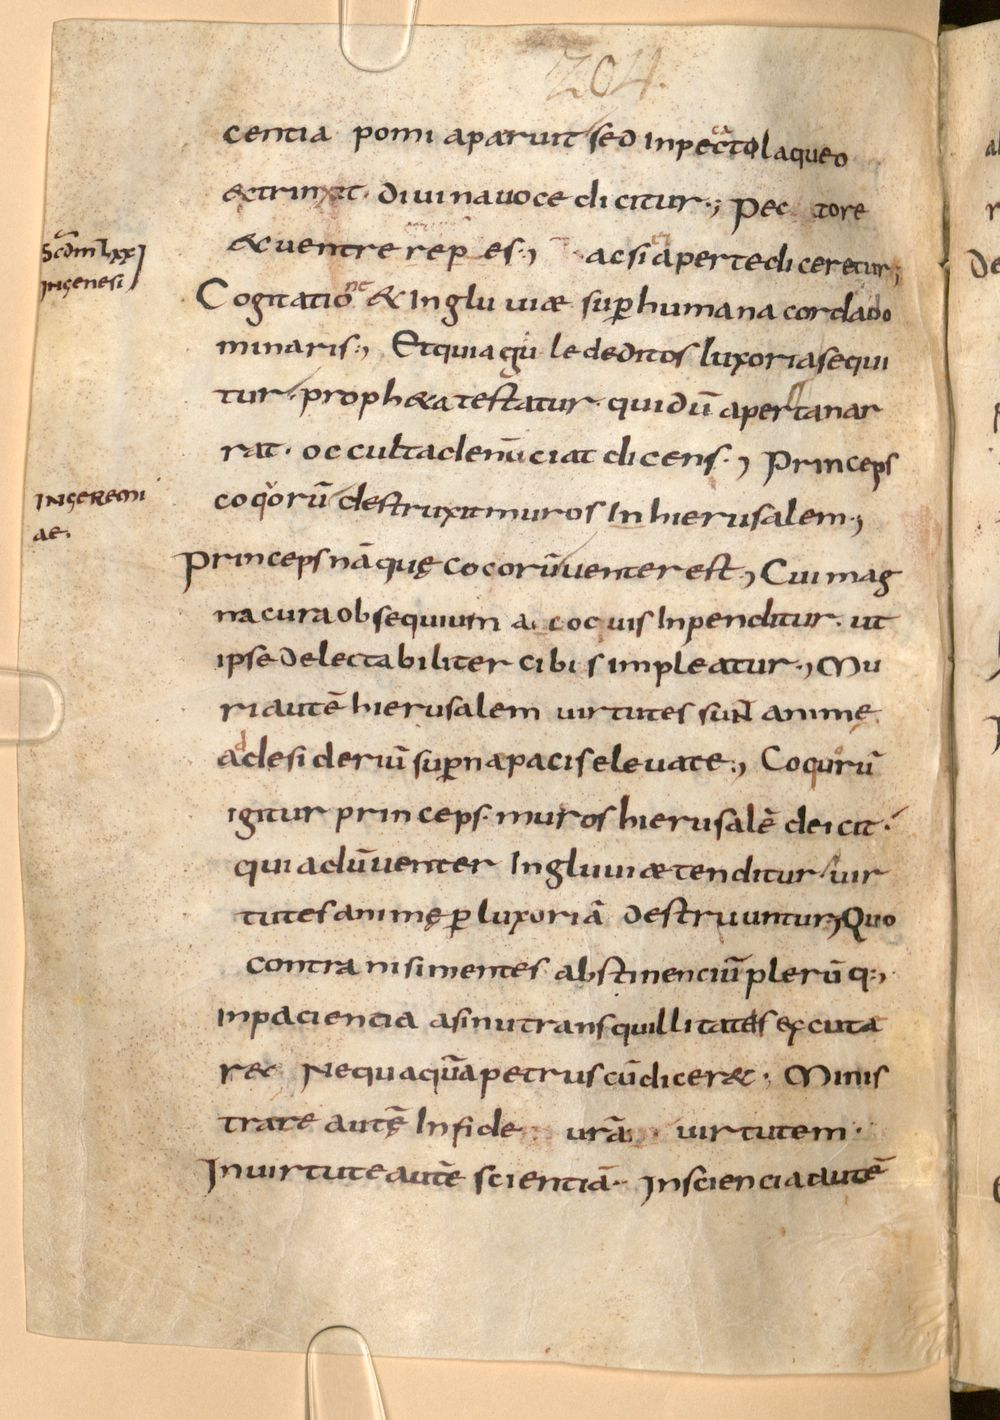 204.
centia pomi aparuit sed inpeccato laqueo
&trinxit. divina voce dicitur·; Pec tore
Scdm LXX
& ventre rep es·, ac si aperte diceretur;
in genesi
Cogitatione & ingluviæ sup humana corda do
minaris·, Et quia gu le deditos luxoria sequi
tur. proph&a testatur. qui dū aperta nar
rat. occulta denūciat dicens·, Princeps
in geremi
coqorū destruxit muros in hierusalem·,
ae.
Princeps nāquę cocorū venter est·, Cui mag
na cura obsequium a cocuis inpenditur. ut
ipse delectabiliter cibis impleatur·, Mu
ri autē hierusalem virtutes suN anime
ad desideriū supna pacis elevate·, Coqurū
igitur princeps. muros hierusalē deicit.
qui a dū venter ingluviæ tenditur vir
tutes animę p luxoriā destruuntur·, Quo
contra nisi mentes abstinenciū plerūq·,
inpaciencia a sinu transquillitates excuta
r& Nequaquā petrus cū dicer&. Minis
trate autē in fide urā virtutem.
In virtute autē scientiā. In sciencia autē